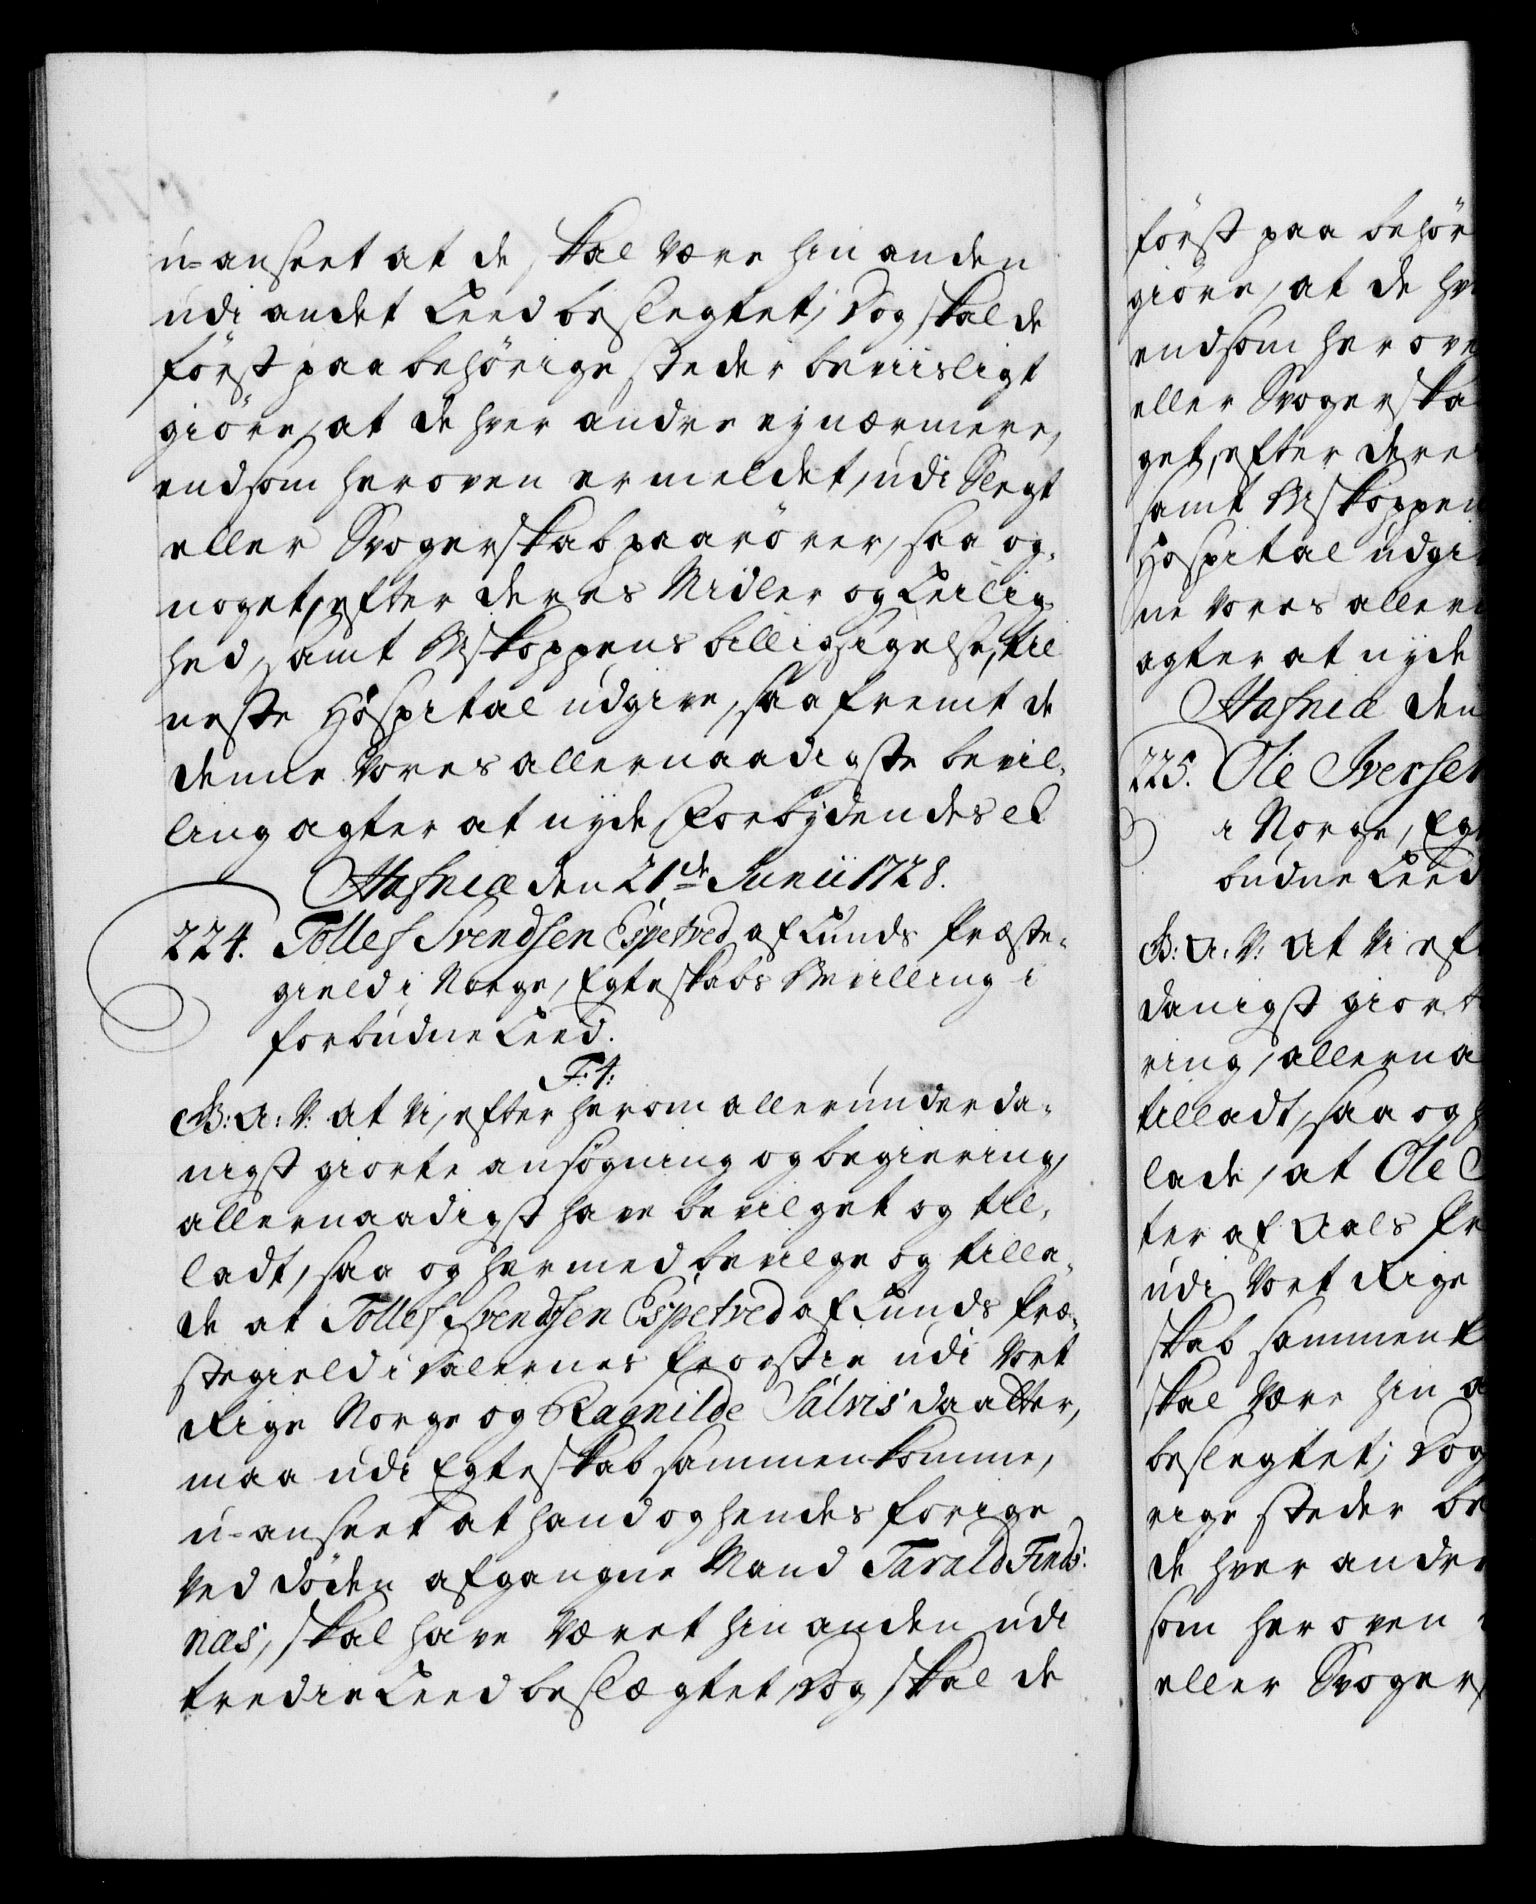 u-anseet at de skal være hin anden
udi andet Leed beslegtet; Dog skal de
först paa behörige steder beviisligt
giöre, at de hver andre ej nærmere,
end som her oven ermeldet, udi Slegt
eller Svogerskab paarörer, saa og
noget, efter deres Midler og Leilig-
hed, samt Biskoppens billigsigelse, til
neste Hospital udgive, saafremt de
denne Vores allernaadigste bevil-
ling agter at nyde, Forbydendes etc
Hafniæ den 21de Junii 1728.
224. Tollef Svendsen Espetved af Lunds Præste-
gield i Norge, Egteskabs Bevilling i
forbudne Leed.
F: 4:
G: A: V: At Vi, efter herom allerunderda-
nigst giorte ansögning og begiering,
allernaadigst have bevilget og til-
ladt, saa og hermed bevilge og tilla-
de at Tollef Svendsen Espetved af Lunds Præ-
stegield i Dalernes Provstie udi Vort
Rige Norge og Ragnilde Salvis daatter,
maa udi Egteskab sammenkomme,
u-anseet at hand og hendes forige
ved döden afgangne Mand Tarald Finds-
nas, skal have været hin anden udi
tredie Leed beslægtet, Dog skal de
först paa behör
giöre, at de hv
end som her ove
eller Svogerska
get, efter dere
samt Biskoppen
Hospital udgi
ne Vores aller
agter at nyde
Hafniæ den
225. Ole Iversen
i Norge, Eg
budne Leed
G: A: V: At Vi eft
danigst giort
ring, allerna
tilladt, saa og h
lade, at Ole
ter af Aals Pr
udi Vort Rige
skab sammenk
skal være hin a
beslegtet; Dog
rige steder be
de hver andre
som her oven
eller Svogers